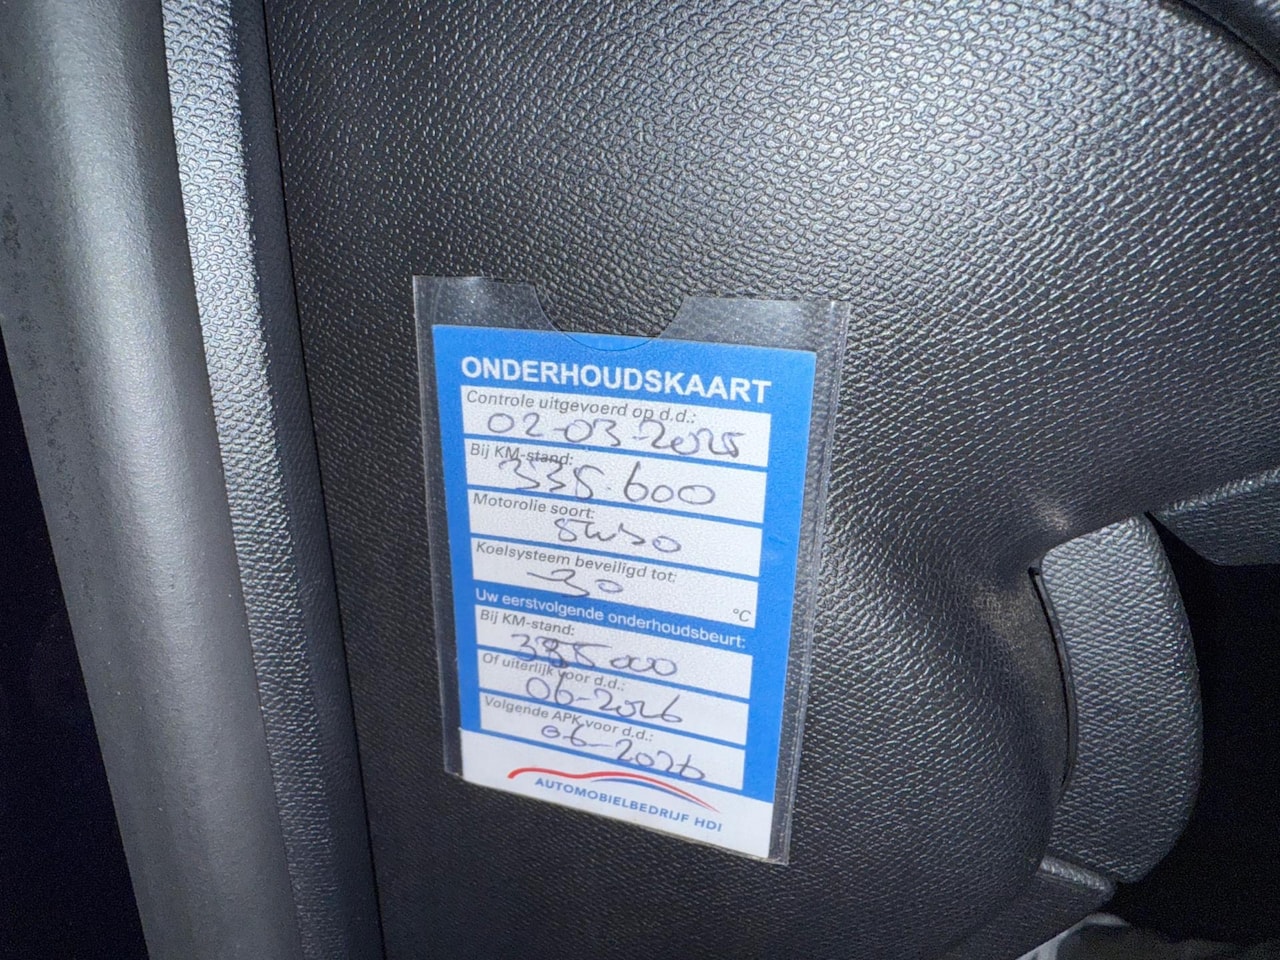 ONDERHOUDSKAART
Controle uitgevoerd op d.d.:
02-03-2025
Bij KM-stand:
335.600
Motorolie soort:
5W30
Koelsysteem beveiligd tot:
-30
°C
Uw eerstvolgende onderhoudsbeurt:
Bij KM-stand:
355000
Of uiterlijk voor d.d.:
06-2026
Volgende APK voor d.d.:
06-2026
AUTOMOBIELBEDRIJF HDI